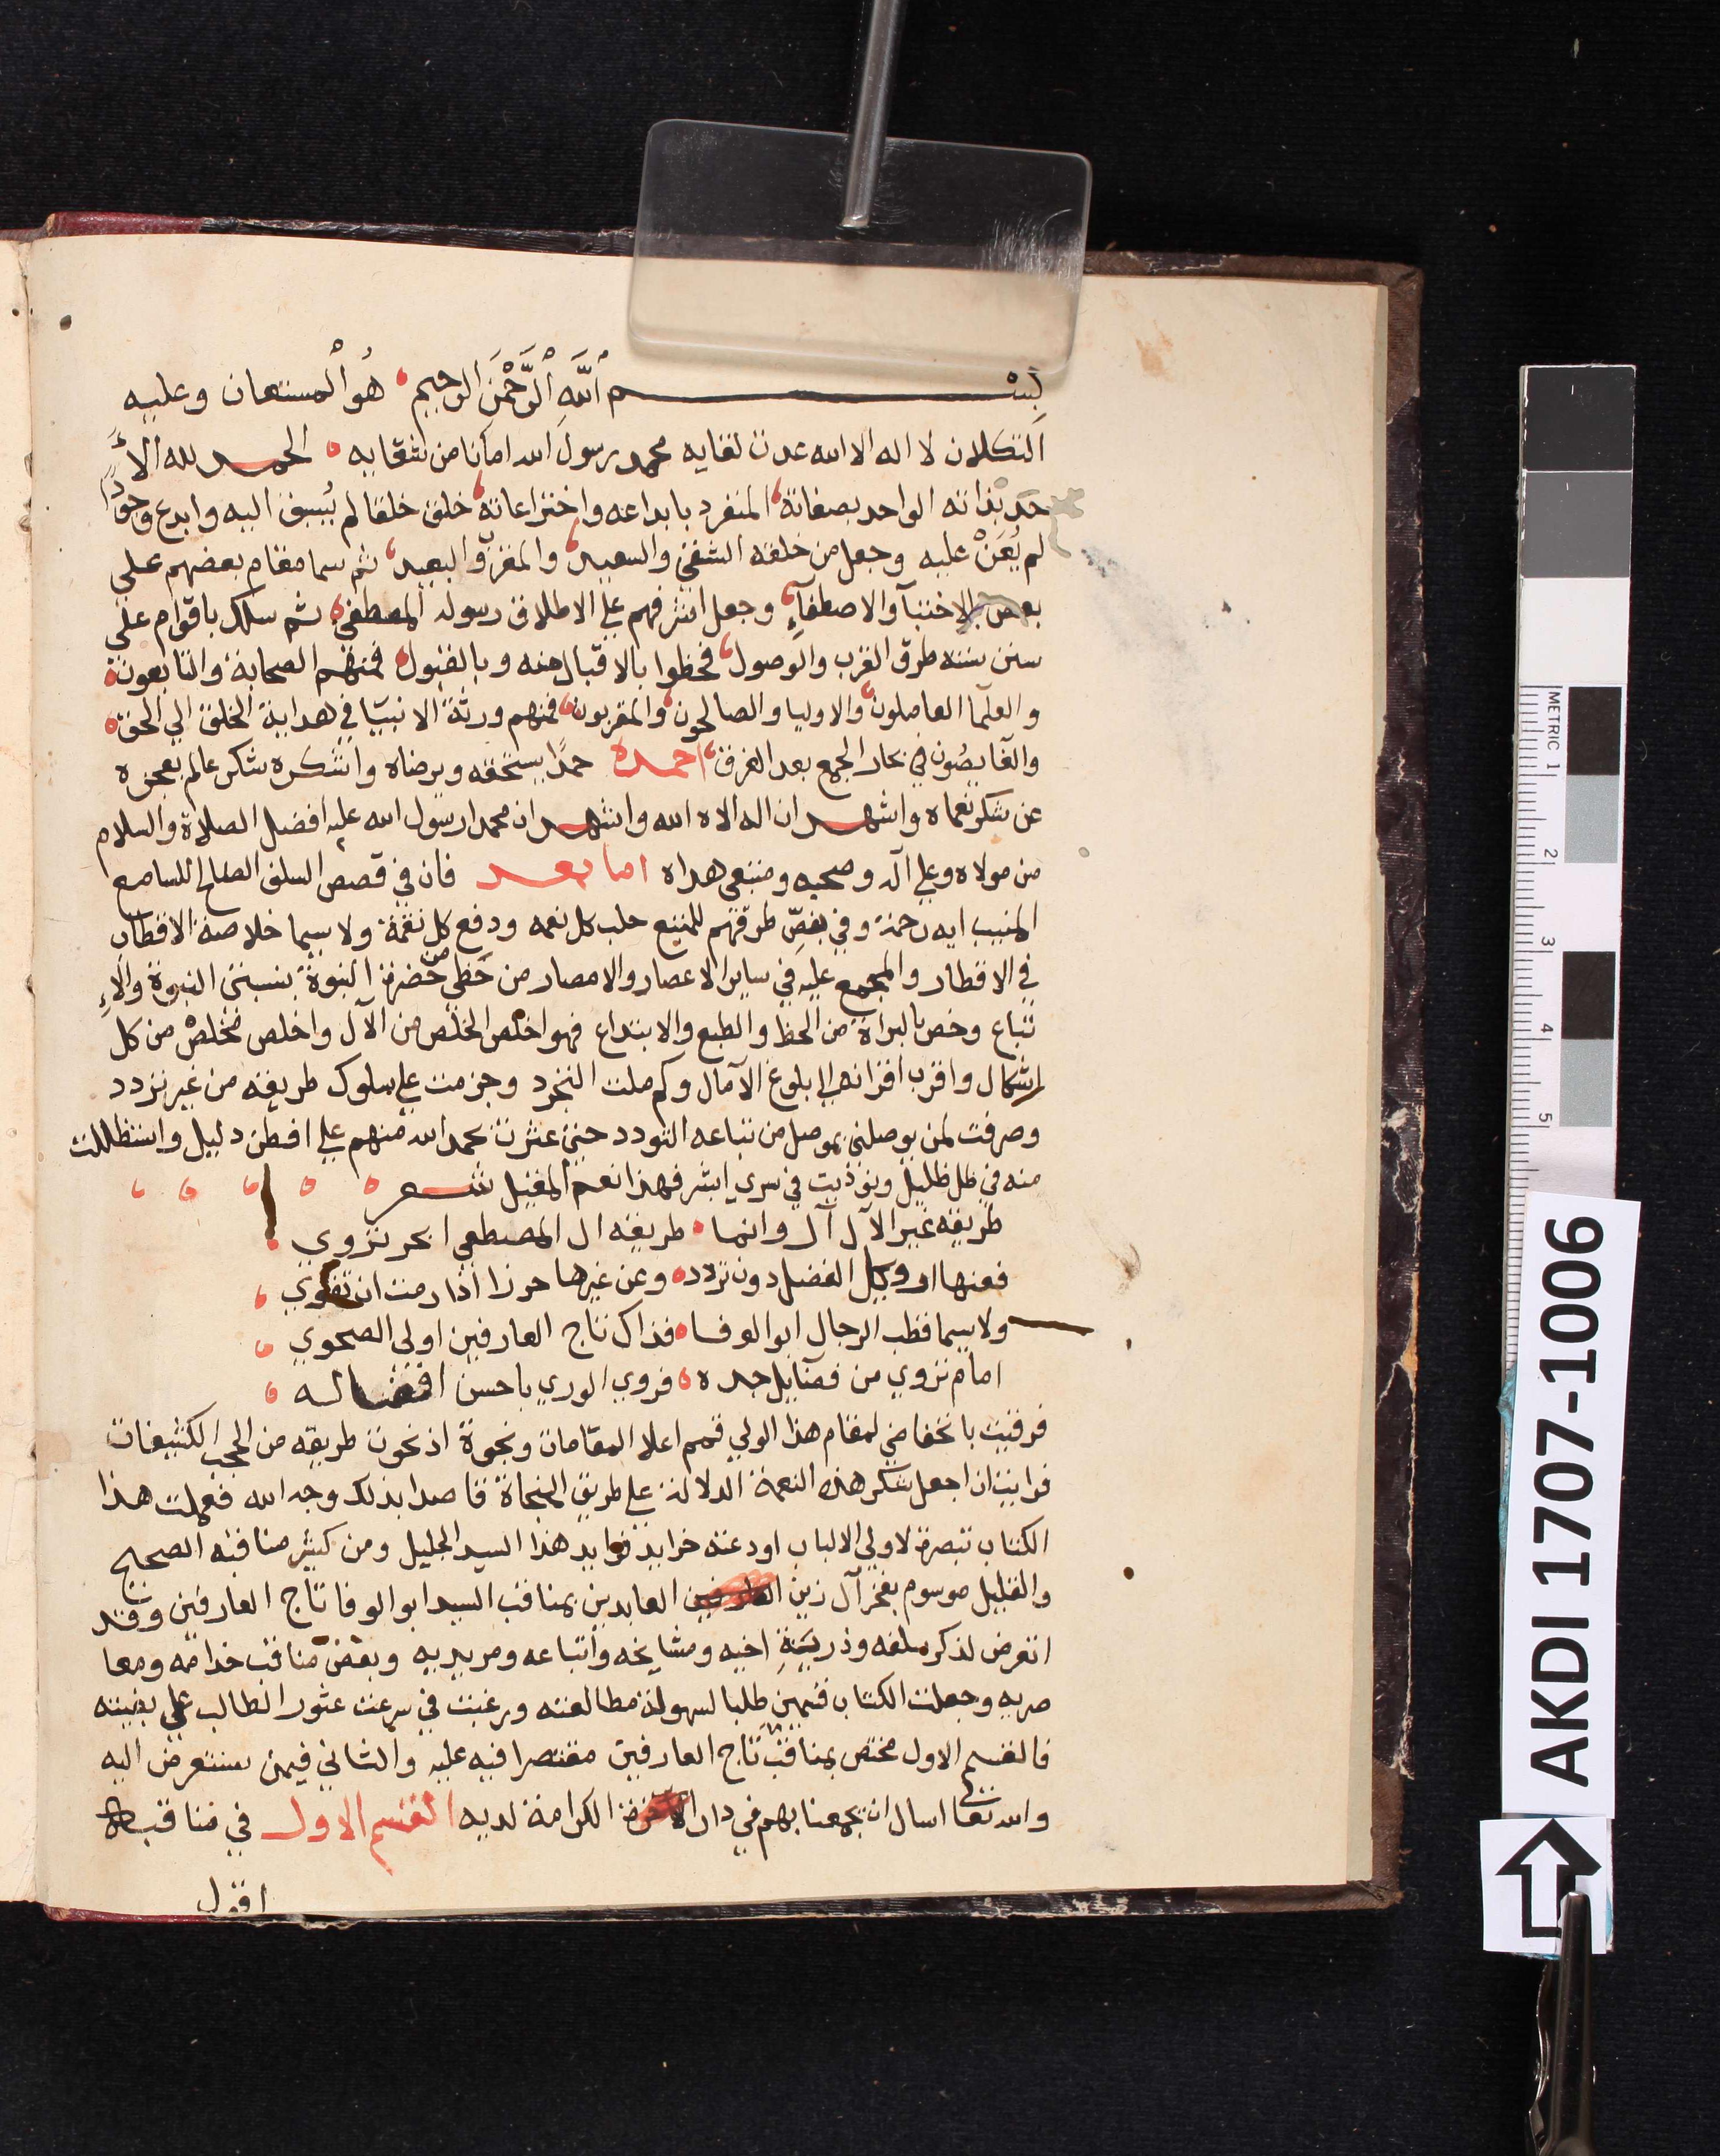 بسم الله الرحمن الرحيم هو المستعان وعليه
التكلان لا اله الا الله عدت لقايه محمد رسول الله امانا من شقايه الحمد لله الأ
حد بذاته الواحد بصفاته المنفرد بابداعه واختراعاته خلق خلقا لم يُسبق اليه وابدع وجودًا
لم يُعَنْ عليه وجعل من خلقه الشقي والسعيد والمقرب والبعيد ثم سما مقام بعضهم على
بعض بالاجتبآ والاصطفآءِ وجعل اشرفهم على الاطلاق رسوله المصطفى ثم سلك باقوام على
سنن سننه طرق القرب والوصول فحظوا بالاقبال منه وبالقبول فمنهم الصحابة والتابعون
والعلما العاملون والاوليا والصالحون والمقربون فمنهم ورثة الانبيا في هداية الخلق الي الحق
والغايصُون في بحار الجمع بعد الفرق احمده حمدًا يستحقه ويرضاه واشكره شكر عالم بعجزه
عن شكر نعماه واشهد ان اله الاه الله واشهد ان محمدا رسول الله عليه افضل الصلاة والسلام
من مولاه وعلي آله وصحبه ومتبعي هداه اما بعد فان في قصص السلف الصالح للسامع
المنيب ايه رحمة وفي بغضِّ طرقهم للمتبع جلب كل نعمه ودفع كل نقمة ولا سيما خلاصة الاقطاب
في الاقطار والمجمع عليه في ساير الاعصار والامصار من حظي من حضرة النبوة بنسبتي النبوة والاءِ
تباع وخص بالبراة من الحظ والطبع والابتداع فهو اخلص الخلص من الآل واخلص مخلصْ من كل
اشكال واقرب اقرانه الي بلوغ الآمال وكم ملت التجرد وجزمت علي سلوك طريقه من غير تردد
وصرفت لمن يوصلني بموصل من تباعه التودد حتي عثرت بحمد الله منهم علي افطن دليل واستظللت
منه في ظل ظليل وتوذيت في سري ابشر فهذا نعم المقيل شعر
طريقه غير الآل آل وانما طريقه ال المصطفي ابحر تروي
فعنها ارو كل الفضل دون تردد وعن غيرها حرزا اذا رمت ان تقوي
ولا سيما قطب الرجال ابو الوفا فذاك تاج العارفين اولى الصحوي
امام تروي من فضآيل جده فروي الوري باحسن افضاله
فرقيت بانخفاضي لمقام هذا الولي قمم اعلا المقامات ونجوة اذ نحوت طريقه من الحجب الكثيفات
فرايت ان اجعل شكر هذه النعمة الدلالة علي طريق النجاة قاصدا بذلك وجه الله فعملت هذا
الكتاب تبصرة لاولي الالباب اودعته خرايد فوايد هذا السيد الجليل ومن كثير مناقبه الصحيح
والقليل موسوم بفخر آل زين العابدين بمناقب السيد ابو الوفا تاج العارفين وقد
اتعرض لذكر سلفه وذريةِ اخيه ومشايخه واتباعه ومريديه وبعض مناقب خدامه ومعا
صريه وجعلت الكتاب قسمين طلبا لسهولة مطالعته ورغبت في سرعت عثور الطالب علي بغيته
فالقسم الاول مختص بمناقب تاج العارفين مقتصرا فيه عليه والثاني فيمن ستعرض اليه
والله تعالى اسال ان يجمعنا بهم في دار الكرامة لديه القسم الاول في مناقبه
اقول
AKDI 1707-1006
METRIC 1 2 3 4 5